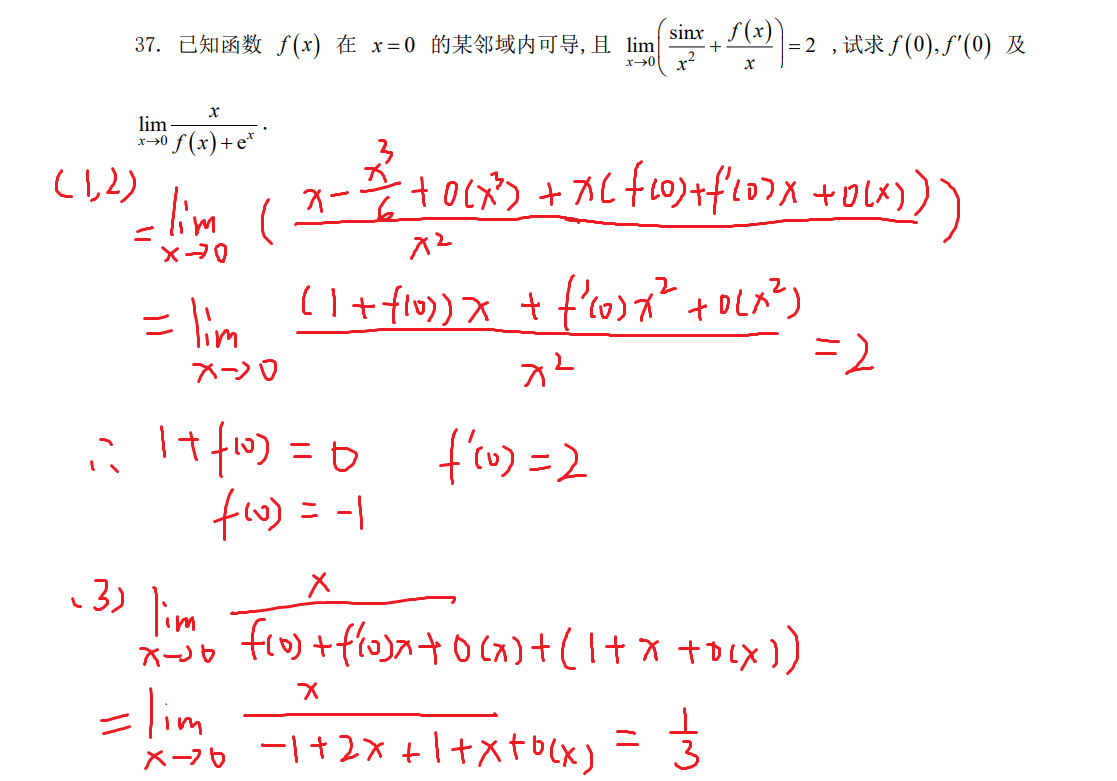 37. 已知函数 f(x) 在 x=0 的某邻域内可导,且 lim_{x→0}(sinx/x² + f(x)/x)=2 ,试求 f(0),f′(0) 及
lim_{x→0} x/(f(x)+e^x).
(1,2)
= lim_{x→0} ( (x - x³/6 + o(x³) + x(f(0)+f′(0)x+o(x)))/x² )
= lim_{x→0} ((1+f(0))x + f′(0)x² + o(x²))/x² = 2
∴ 1+f(0) = 0 f′(0) = 2
f(0) = -1
(3) lim_{x→0} x/(f(0)+f′(0)x+o(x)+(1+x+o(x)))
= lim_{x→0} x/(-1+2x+1+x+o(x)) = 1/3